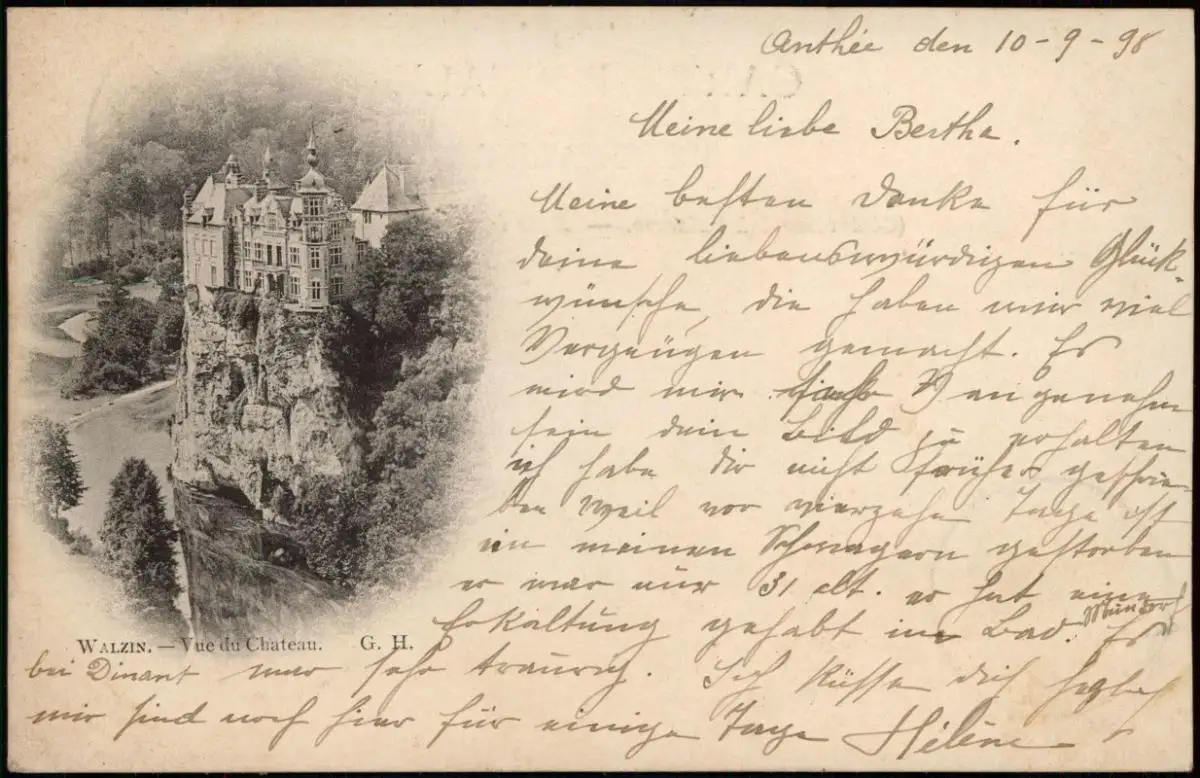 Anthée den 10-9-98
Meine liebe Bertha.
Meine besten Danke für
deine liebenswürdigen Glück-
wünsche, die haben mir viel
Vergnügen gemacht. Es
wird mir angenehm
sein dein Bild zu erhalten
ich habe dir nicht früher geschrie-
ben weil vor vierzehn Tage ist
ein meinen Schwagern gestorben
er war nur 31 alt. er hat eine
Erkaltung gehabt im Bad. Es
WALZIN. — Vue du Chateau. G. H.
bei Dinant war sehr traurig. Ich küsse dich
wir sind noch hier für einige Tage Hélène